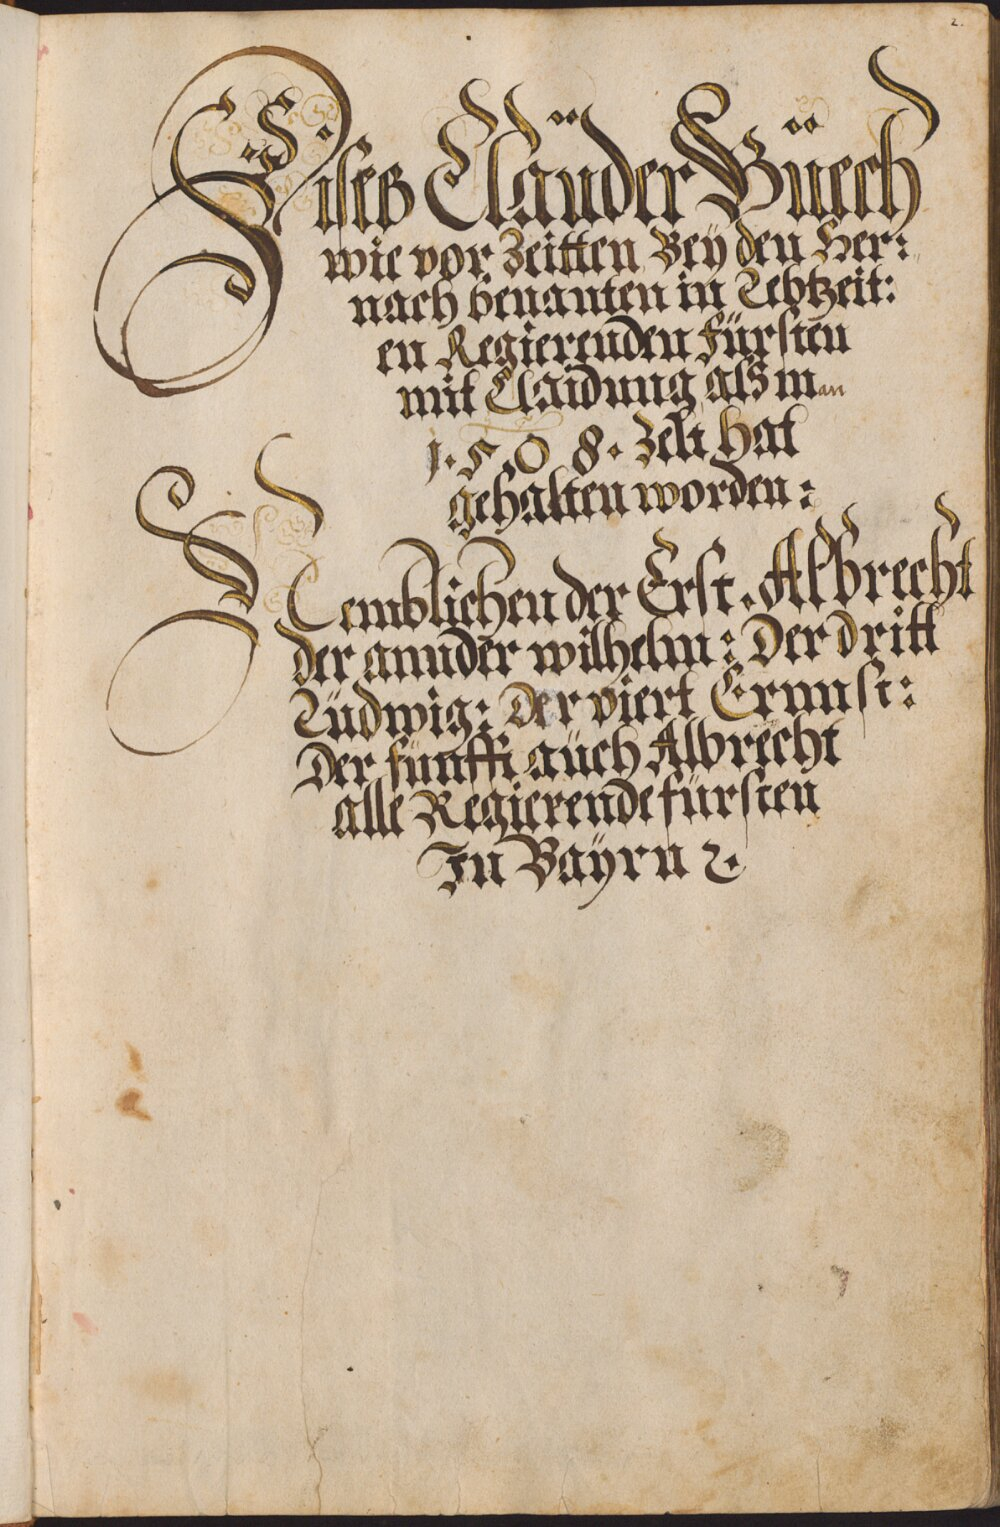 2.
Dises Claüder Büech
wie vor Zeitten Bey den Her:
nach benanten in Lebtzeit:
en Regierenden fürsten
mit Claidung als man
1.5.0 8. zelt hat
gehalten worden:
Nemblichen der Erst. Albrecht
der annder wilhelm: Der dritt
Ludwig: Der viert Ernnst:
Der fünfft aüch Albrecht
alle Regierende fürsten
In Bayrn ꝛ.